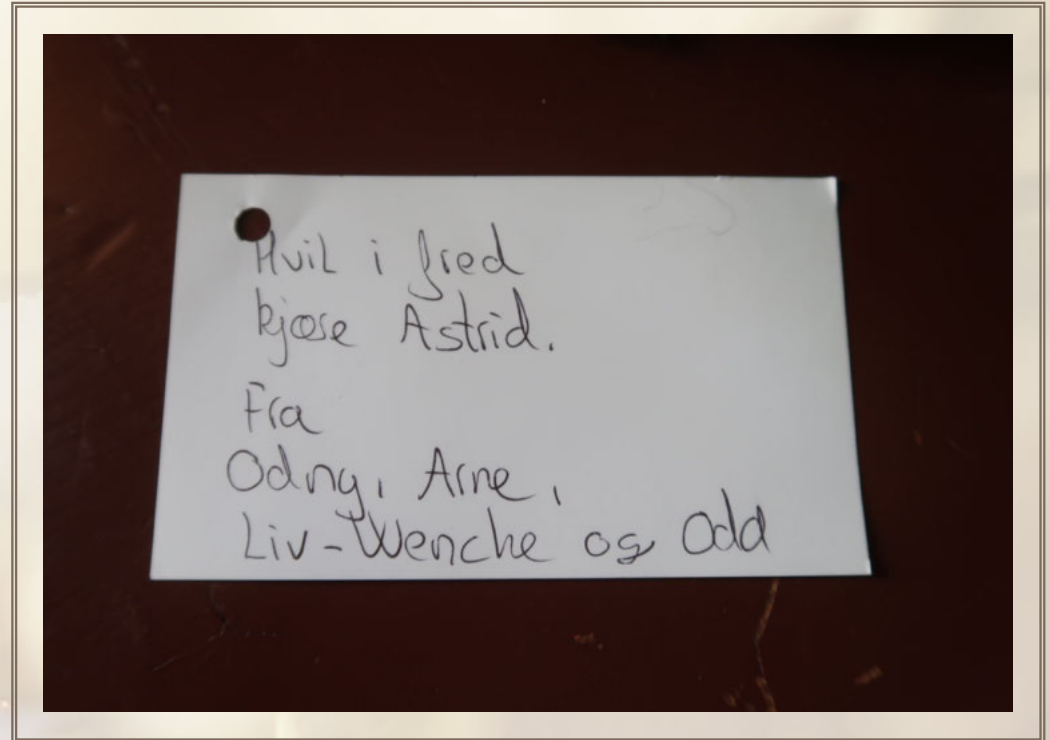 Hvil i fred
kjære Astrid.
Fra
Odny, Arne,
Liv-Wenche og Odd